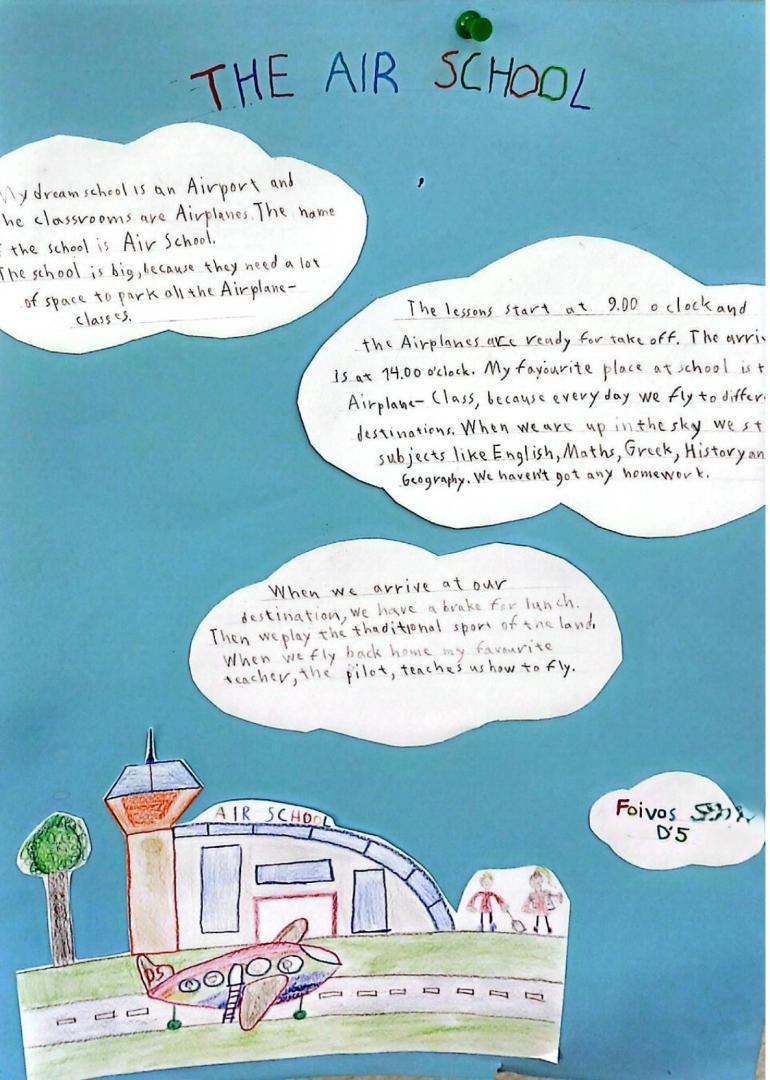 THE AIR SCHOOL
My dream school is an Airport and
he classrooms are Airplanes. The name
f the school is Air School.
The school is big, because they need a lot
of space to park all the Airplane-
classes.
The lessons start at 9.00 o clock and
the Airplanes are ready for take off. The arri
is at 14.00 o'clock. My favourite place at school is t
Airplane- Class, because every day we fly to differ
destinations. When we are up in the sky we st
subjects like English, Maths, Greek, History an
Geography. We haven't got any homework.
When we arrive at our
destination, we have a brake for lunch.
Then we play the thaditional sport of the land.
When we fly back home my favourite
teacher, the pilot, teaches us how to fly.
Foivos
D'5
AIR SCHOOL
D5